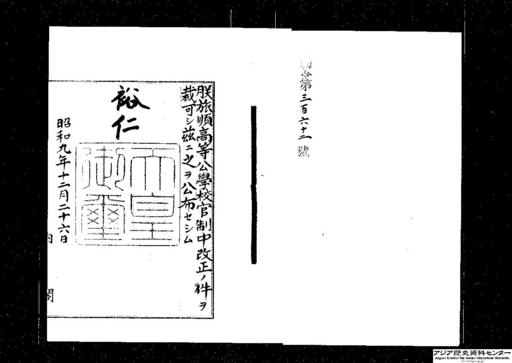 勅令第三百六十一號
朕旅順高等公學校官制中改正ノ件ヲ
裁可シ茲ニ之ヲ公布セシム
裕仁
天皇
御璽
昭和九年十二月二十六日
内閣
アジア歴史資料センター
Japan Center for Asian Historical Records